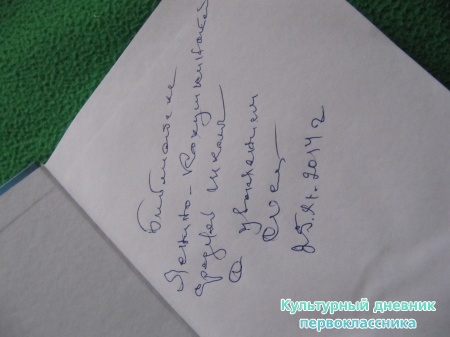 Библиотеке
Ленино-Кокушкинской
средней школы
С уважением
25.XI.2014 г
Культурный дневник
первоклассника